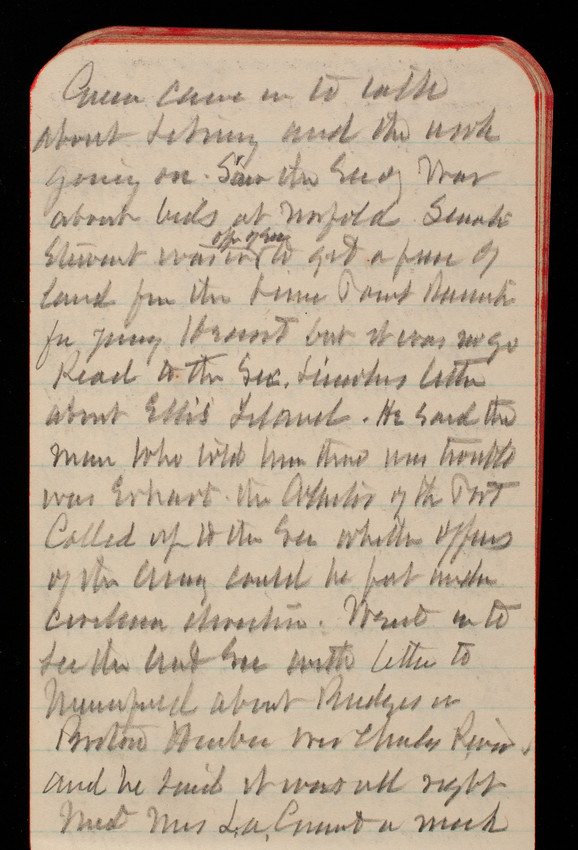 Green came in to talk
about Library and the work
going on. Saw the Secy War
about bids at Norfolk. Senator
Stewart was in off of Sec to get a piece of
land for the
for young but it was no go
Read to the Sec. letter
about Ellis Island. He said the
man who told him there was trouble
was Erhart the Collector of the Port
Called up to the Sec whether officers
of the Army could be put under
civilian direction. Went in to
see the Asst Sec with letter to
about Bridges in
Boston Harbor over Charles River
and he said it was all right
Met Mrs a